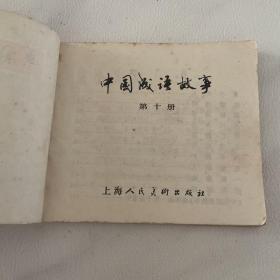 中国成语故事
第十册
上海人民美术出版社